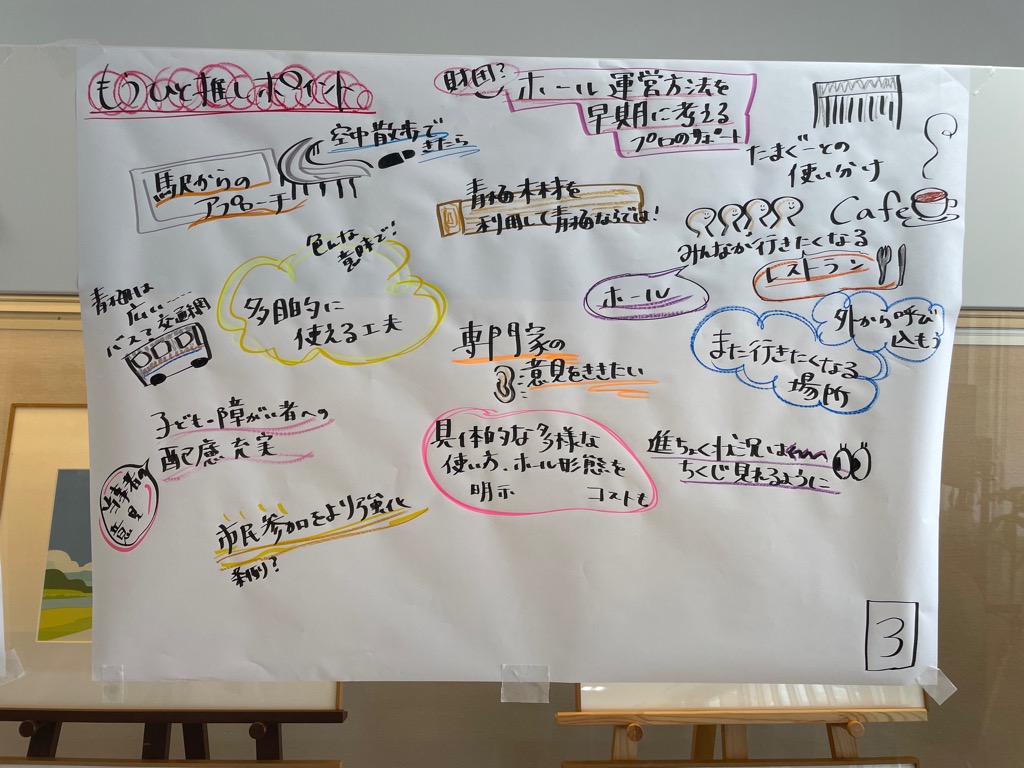 もうひと推しポイント
財団?
ホール運営方法を
早期に考える
プロのサポート
空中散歩で
きたら
駅からの
アプローチ
たまぐーとの
使い分け
青梅木材を
利用して青梅ならでは!
Cafe
みんなが行きたくなる
レストラン
ホール
色んな
意味で!
多目的に
使える工夫
青梅は
広い……
バスで交通網
外から呼び
込もう
また行きたくなる
場所
専門家の
意見をききたい
子ども・障がい者への
配慮充実
当事者の
意見
具体的な多様な
使い方、ホール形態を
明示 コストも
進ちょく状況は
ちくじ見れるように
市民参加をより強化
条例?
3